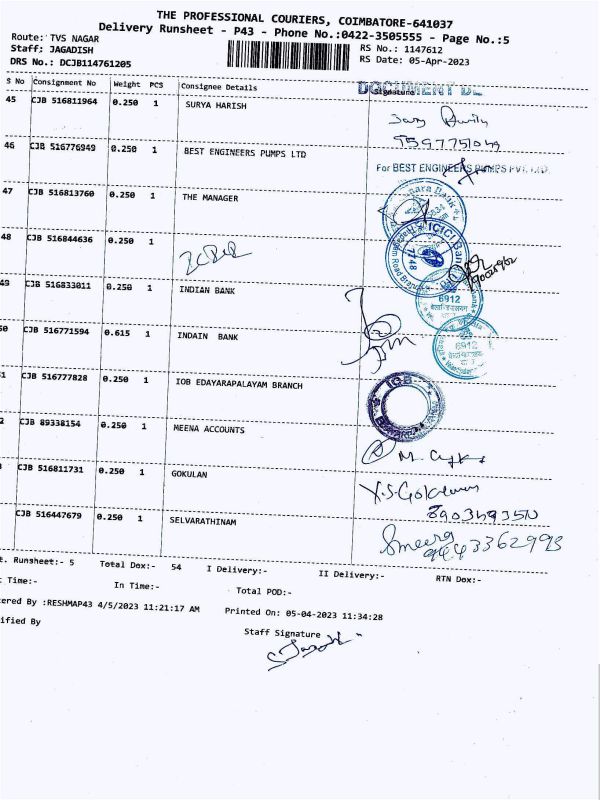 THE PROFESSIONAL COURIERS, COIMBATORE-641037
Delivery Runsheet - P43 - Phone No.:0422-3505555 - Page No.:5
Route: TVS NAGAR
Staff: JAGADISH
DRS No.: DCJB114761205
RS No.: 1147612
RS Date: 05-Apr-2023
S No Consignment No Weight PCS Consignee Details Signature
45 CJB 516811964 0.250 1 SURYA HARISH
46 CJB 516776949 0.250 1 BEST ENGINEERS PUMPS LTD
For BEST ENGINEERS PUMPS PVT. LTD.
47 CJB 516813760 0.250 1 THE MANAGER
48 CJB 516844636 0.250 1
ICICI Bank
49 CJB 516833011 0.250 1 INDIAN BANK
6912
50 CJB 516771594 0.615 1 INDAIN BANK
6912
1 CJB 516777828 0.250 1 IOB EDAYARAPALAYAM BRANCH
IOB
2 CJB 89338154 0.250 1 MEENA ACCOUNTS
CJB 516811731 0.250 1 GOKULAN
CJB 516447679 0.250 1 SELVARATHINAM
9443362993
t. Runsheet:- 5 Total Dox:- 54 I Delivery:- II Delivery:- RTN Dox:-
t Time:- In Time:- Total POD:-
ered By :RESHMAP43 4/5/2023 11:21:17 AM Printed On: 05-04-2023 11:34:28
ified By
Staff Signature